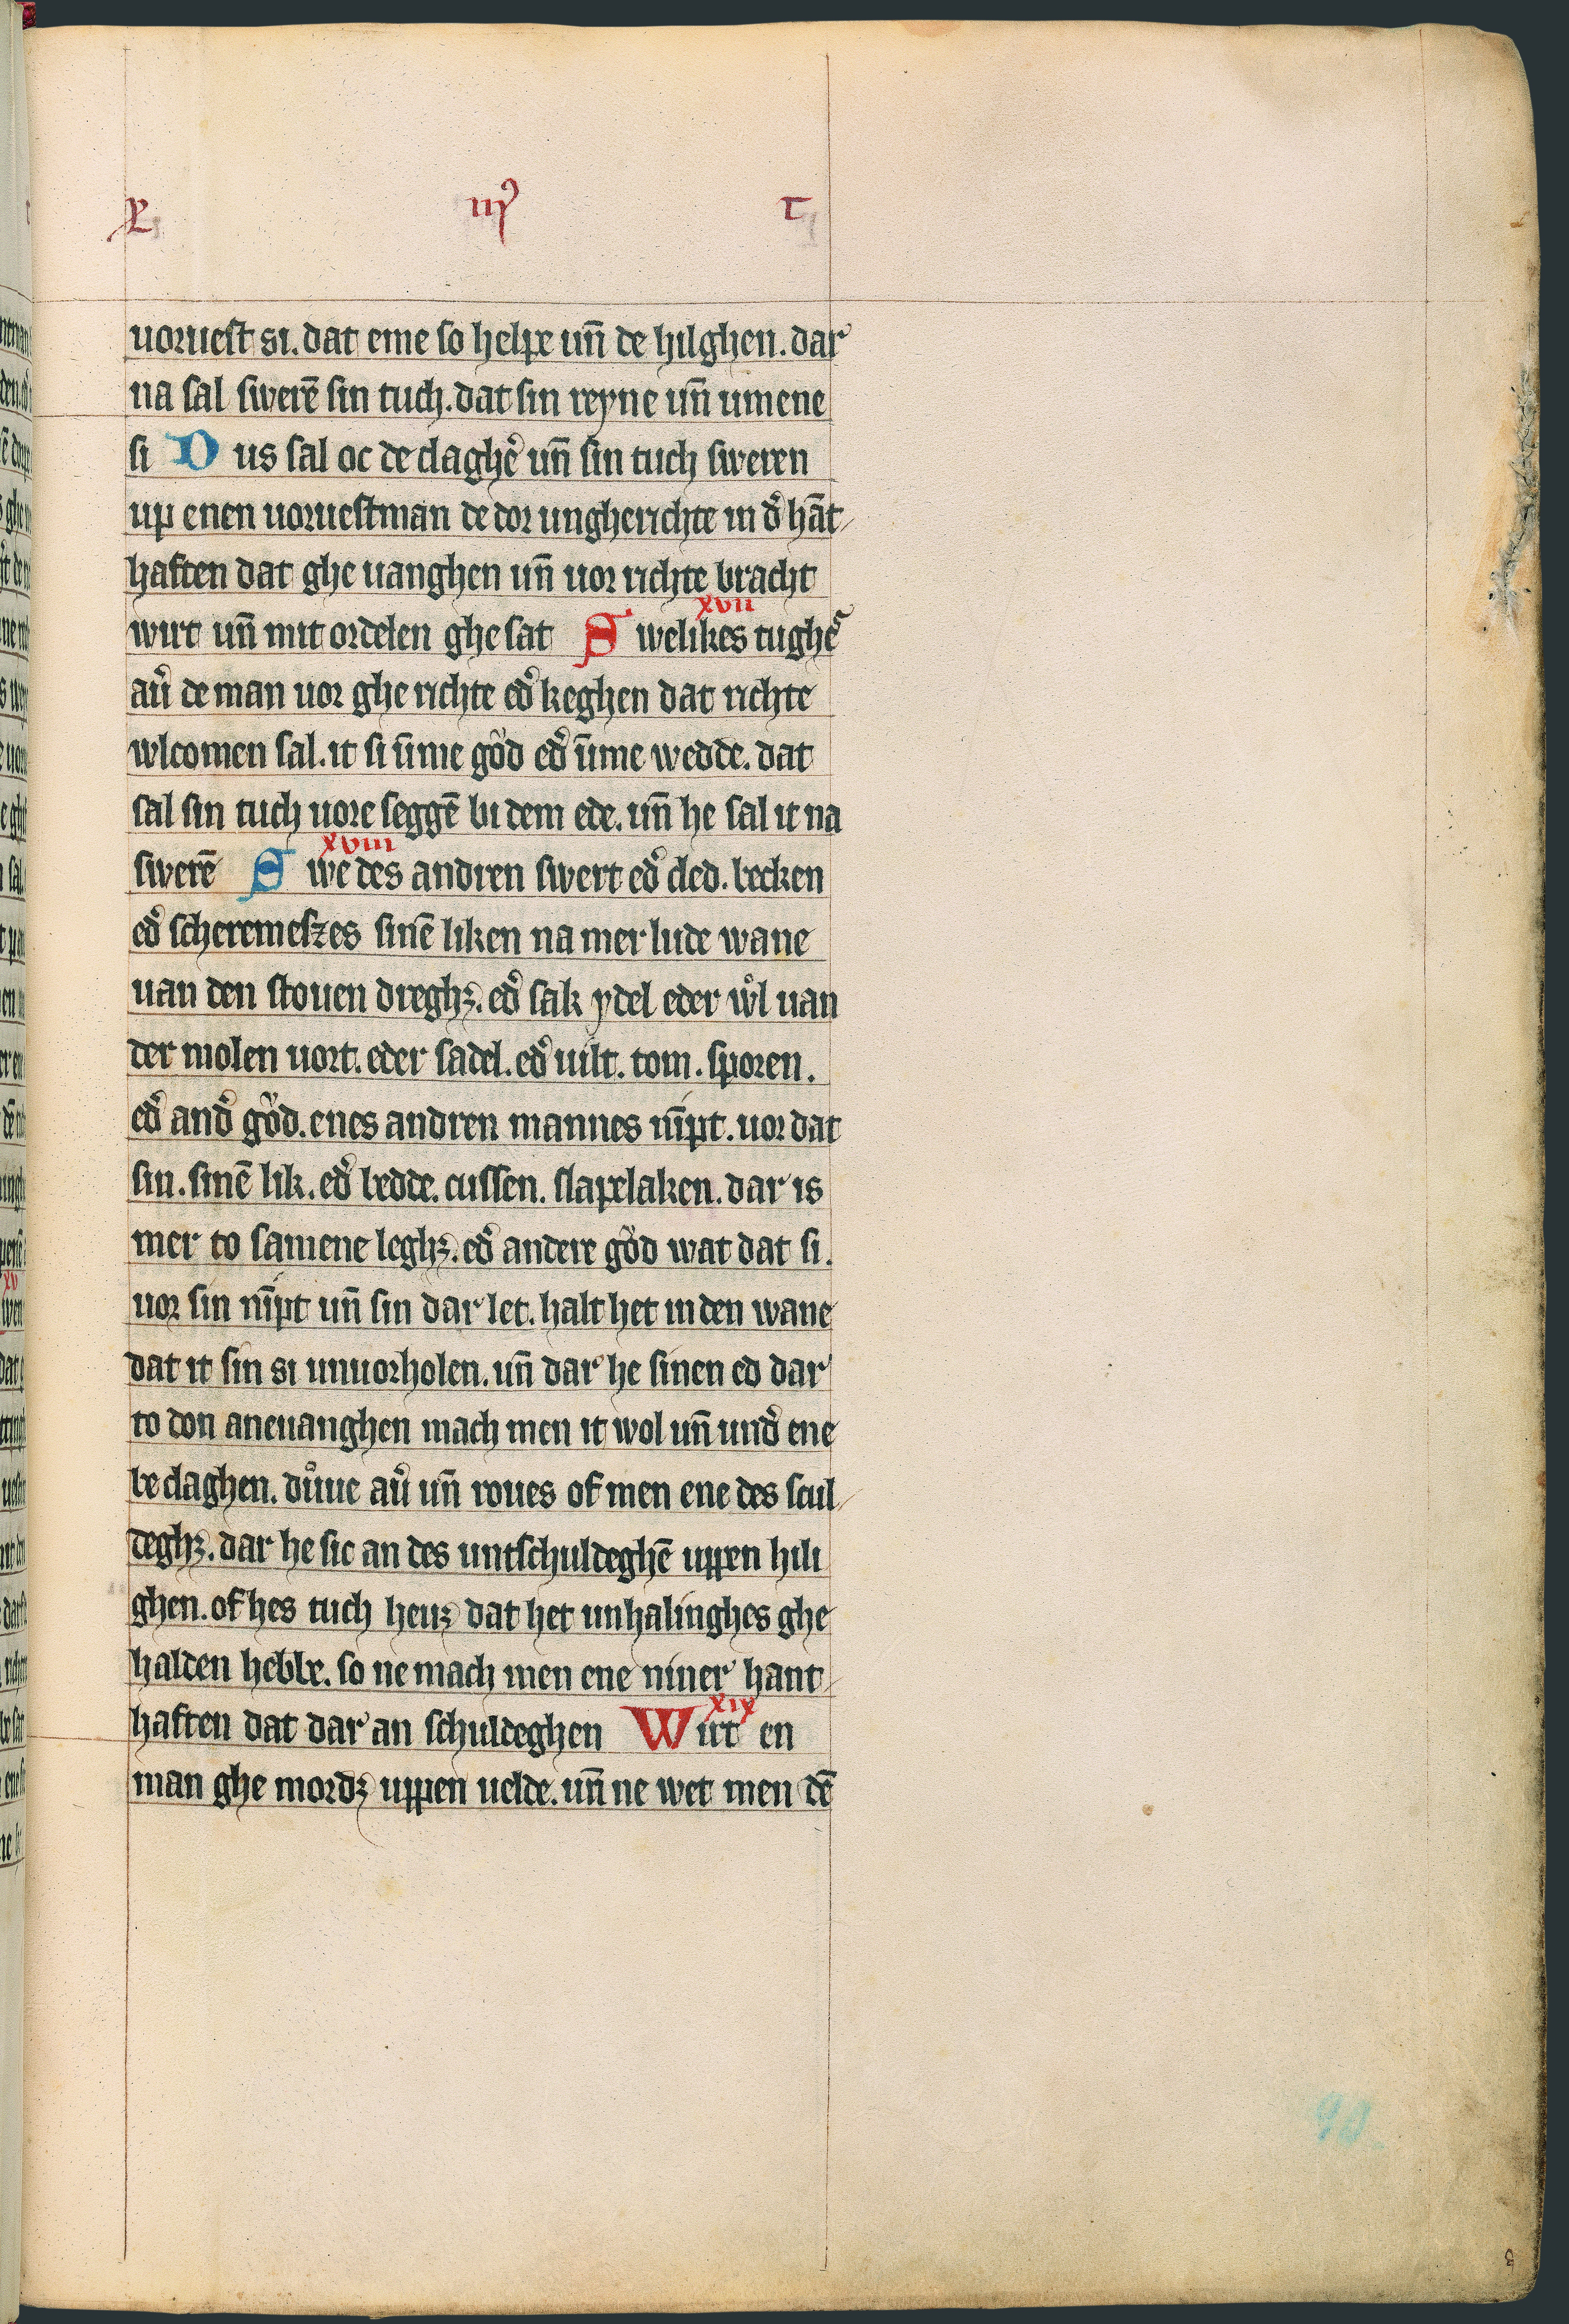 R iij⁹ T
uoruest si. dat eme so helpe un̄ de hilghen. dar
na sal swerē sin tuch. dat sin reyne un̄ umene
si Dus sal oc de claghe᷑ un̄ sin tuch sweren
up enen uoruestman de dor ungherichte in d᷑ hāt
haften dat ghe uanghen un̄ uor richte bracht
xvii
wirt un̄ mit ordelen ghe sat Swelikes tughe᷑
au᷑ de man uor ghe richte ed᷑ keghen dat richte
wlcomen sal. it si ūme gŏd ed᷑ ūme wedde. dat
sal sin tuch uore seggē bi dem ede. un̄ he sal it na
xviii
swerē Swe des andren swert ed᷑ cled. becken
ed᷑ scheremeszes sinē liken na mer lude wane
uan den stouen dreghꝫ. ed᷑ sak ydel eder wͦl uan
der molen uort. eder sadel. ed᷑ uilt. tom. sporen.
ed᷑ and᷑ gŏd. enes andren mannes nīpt. uor dat
sin. sinē lik. ed᷑ bedde. cussen. slapelaken. dar is
mer to samene leghꝫ. ed᷑ andere gŏd wat dat si.
uor sin nīpt un̄ sin dar let. halt het in den wane
dat it sin si unuorholen. un̄ dar he sinen ed dar
to don aneuanghen mach men it wol un̄ und᷑ ene
be claghen. důue au᷑ un̄ roues of men ene des scul
deghꝫ. dar he sic an des untschuldeghē uppen hili
ghen. of hes tuch heuꝫ dat het unhalinghes ghe
halden hebbe. so ne mach men ene niner hant
xix
haften dat dar an schuldeghen Wirt en
man ghe mordꝫ uppen uelde. un̄ ne wet men dē
90